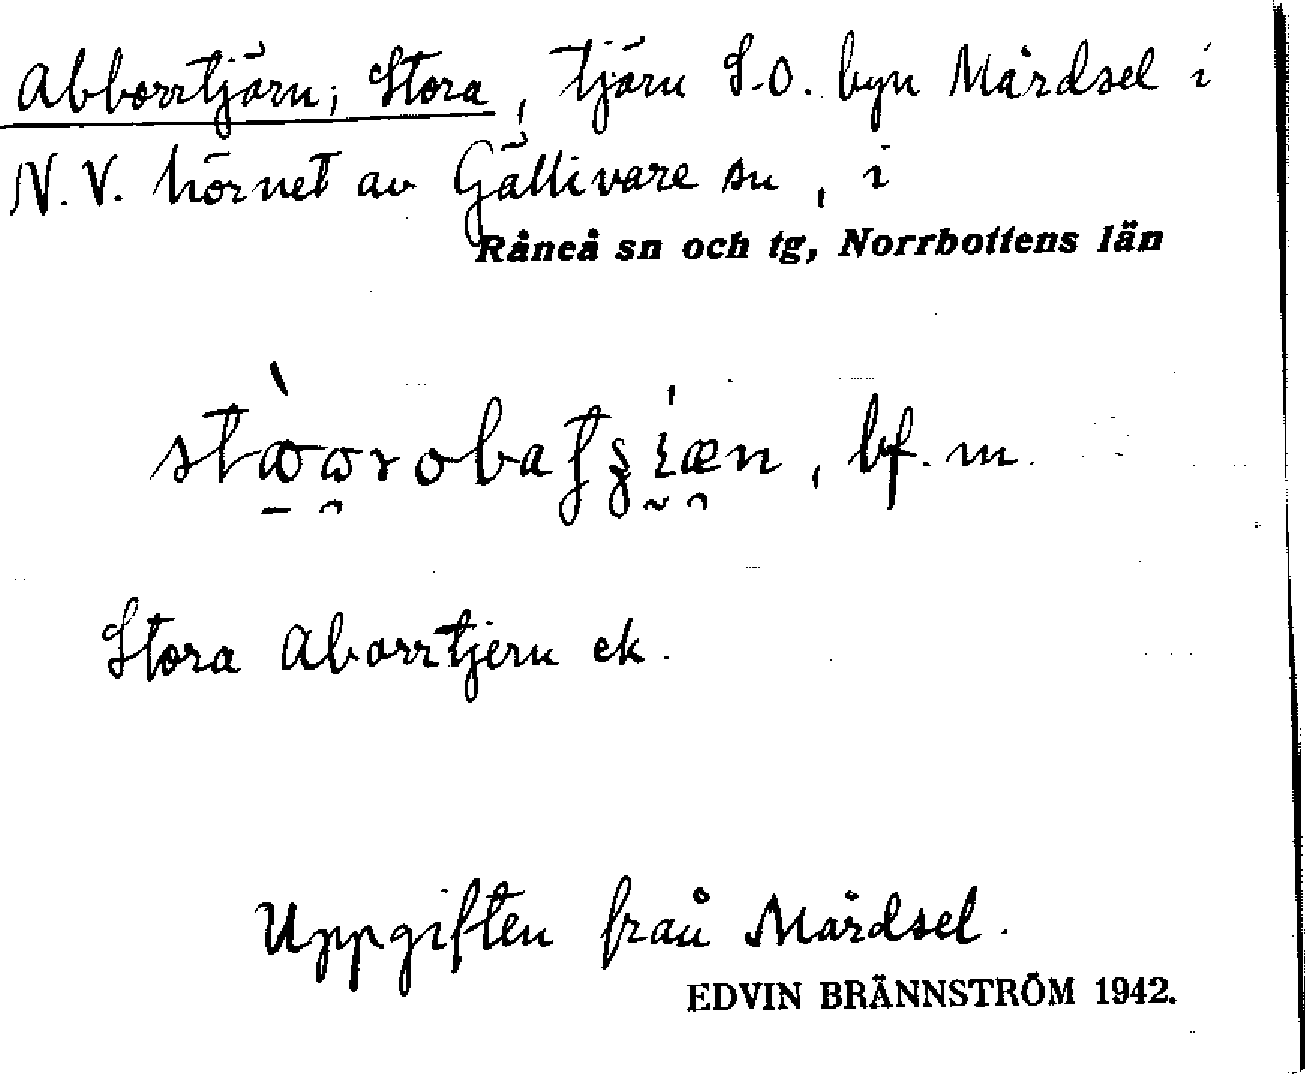 Abborrtjärn, Stora, tjärn S.O. byn Mårdsel i
N.V. hörnet av Gällivare sn, i
Råneå sn och tg, Norrbottens län
, bf. m.
Stora Aborrtjern ek.
Uppgiften från Mårdsel.
EDVIN BRÄNNSTRÖM 1942.